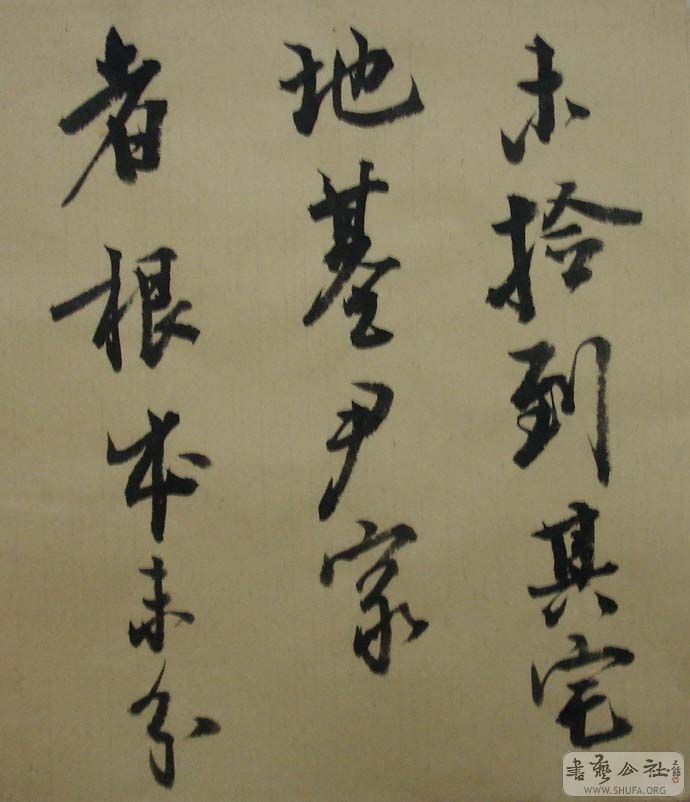 未拾到其宅
地基尹家
者根本未分
書藝公社
WWW.SHUFA.ORG